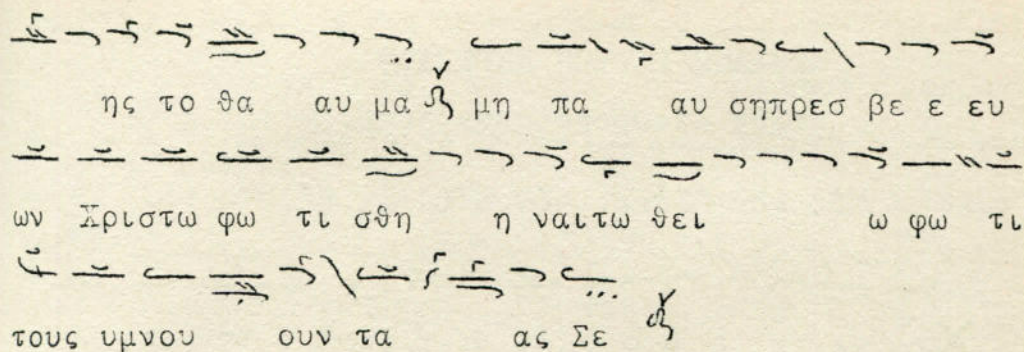 ης το θα αυ μα μη πα αυ σηπρεσ βε ε ευ
ων Χριστω φω τι σθη η ναιτω θει ω φω τι
τους υμνου ουν τα ας Σε